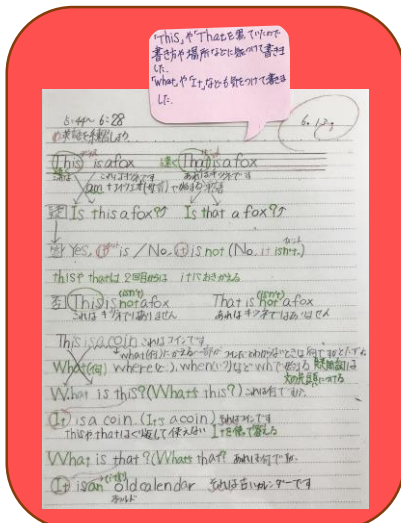 「This」や「That」を
書き方や場所などに気をつけて書きま
した。
「what」や「It」なども気をつけて書きま
した。
5:44～6:28
6.12
This is a fox 遠く That is a fox
これは これはキツネです あれはキツネです
am
疑 Is this a fox?↗ Is that a fox?↗
Yes, it is / No, it is not (No, it isn't.)
thisやthatは2回目からは itにおきかえる
否 This is not a fox That is not a fox
(isn't) (isn't)
これはキツネではありません あれはキツネではありません
This is a coin これはコインです
what(何)
What(何) where(どこ), when(いつ)など whで始まる疑問詞は
文の先頭につける
What is this? (What's this?) これは何ですか。
It is a coin. (It's a coin) それはコインです
thisやthatはくり返して使えない Itを使って答える
What is that? (What's that? あれは何ですか。
It is an old calendar それは古いカレンダーです
オールド